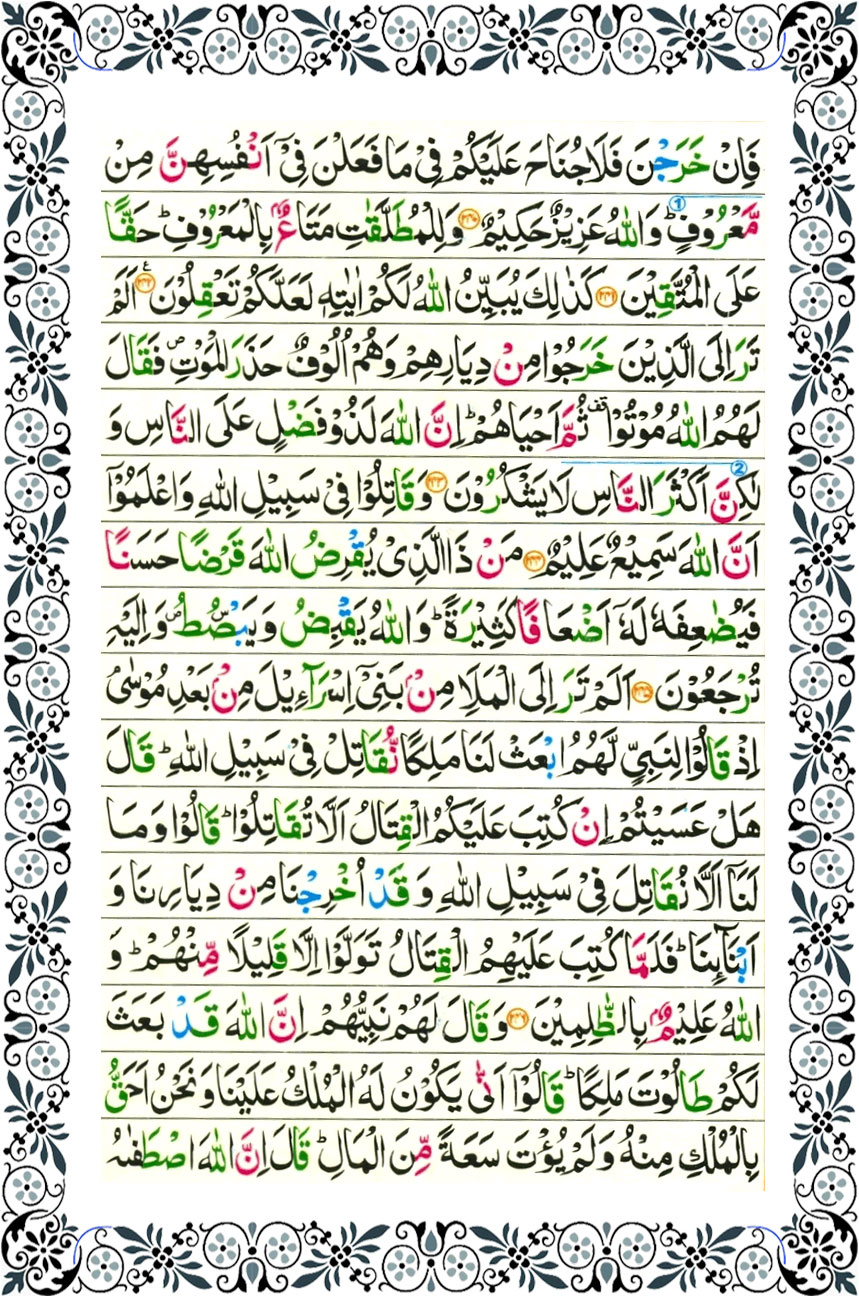 فَاِنْ خَرَجْنَ فَلَا جُنَاحَ عَلَيْكُمْ فِیْ مَا فَعَلْنَ فِیْۤ اَنْفُسِهِنَّ مِنْ
مَّعْرُوْفٍؕ وَاللّٰهُ عَزِيْزٌ حَكِيْمٌ ۝۲۴۰ وَلِلْمُطَلَّقٰتِ مَتَاعٌۢ بِالْمَعْرُوْفِؕ حَقًّا
عَلَی الْمُتَّقِيْنَ ۝۲۴۱ كَذٰلِكَ يُبَيِّنُ اللّٰهُ لَكُمْ اٰيٰتِهٖ لَعَلَّكُمْ تَعْقِلُوْنَ ۝۲۴۲ع اَلَمْ
تَرَ اِلَی الَّذِيْنَ خَرَجُوْا مِنْ دِيَارِهِمْ وَهُمْ اُلُوْفٌ حَذَرَ الْمَوْتِ۪ فَقَالَ
لَهُمُ اللّٰهُ مُوْتُوْا قف ثُمَّ اَحْيَاهُمْؕ اِنَّ اللّٰهَ لَذُوْ فَضْلٍ عَلَی النَّاسِ وَ
لٰكِنَّ اَكْثَرَ النَّاسِ لَا يَشْكُرُوْنَ ۝۲۴۳ وَقَاتِلُوْا فِیْ سَبِيْلِ اللّٰهِ وَاعْلَمُوْۤا
اَنَّ اللّٰهَ سَمِيْعٌ عَلِيْمٌ ۝۲۴۴ مَنْ ذَا الَّذِیْ يُقْرِضُ اللّٰهَ قَرْضًا حَسَنًا
فَيُضٰعِفَهٗ لَهٗۤ اَضْعَافًا كَثِيْرَةًؕ وَاللّٰهُ يَقْبِضُ وَيَبْصُۜطُ۪ وَاِلَيْهِ
تُرْجَعُوْنَ ۝۲۴۵ اَلَمْ تَرَ اِلَی الْمَلَاِ مِنْۢ بَنِیْۤ اِسْرَآءِيْلَ مِنْۢ بَعْدِ مُوْسٰیۘ
اِذْ قَالُوْا لِنَبِیٍّ لَّهُمُ ابْعَثْ لَنَا مَلِكًا نُّقَاتِلْ فِیْ سَبِيْلِ اللّٰهِؕ قَالَ
هَلْ عَسَيْتُمْ اِنْ كُتِبَ عَلَيْكُمُ الْقِتَالُ اَلَّا تُقَاتِلُوْاؕ قَالُوْا وَمَا
لَنَاۤ اَلَّا نُقَاتِلَ فِیْ سَبِيْلِ اللّٰهِ وَ قَدْ اُخْرِجْنَا مِنْ دِيَارِنَا وَ
اَبْنَآىِٕنَاؕ فَلَمَّا كُتِبَ عَلَيْهِمُ الْقِتَالُ تَوَلَّوْا اِلَّا قَلِيْلًا مِّنْهُمْؕ وَ
اللّٰهُ عَلِيْمٌۢ بِالظّٰلِمِيْنَ ۝۲۴۶ وَقَالَ لَهُمْ نَبِيُّهُمْ اِنَّ اللّٰهَ قَدْ بَعَثَ
لَكُمْ طَالُوْتَ مَلِكًاؕ قَالُوْۤا اَنّٰی يَكُوْنُ لَهُ الْمُلْكُ عَلَيْنَا وَنَحْنُ اَحَقُّ
بِالْمُلْكِ مِنْهُ وَلَمْ يُؤْتَ سَعَةً مِّنَ الْمَالِؕ قَالَ اِنَّ اللّٰهَ اصْطَفٰىهُ